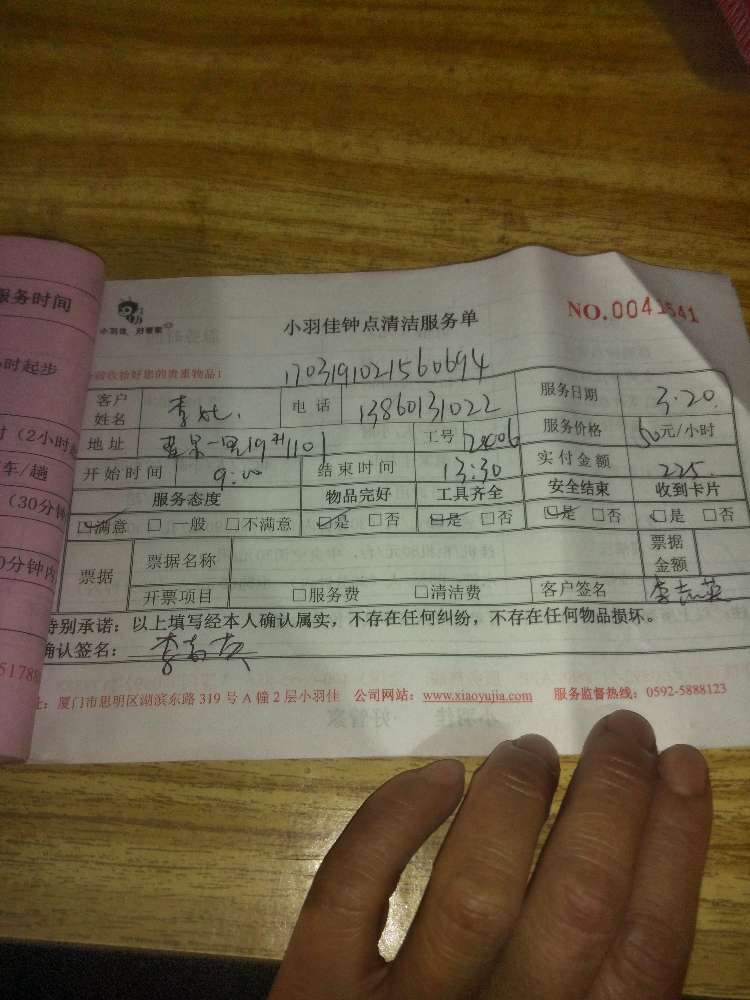 服务时间
小时起步
(2小时起
车/趟
(30分钟
0分钟内
小羽佳 好管家
小羽佳钟点清洁服务单
NO.0041541
验收恰好您的贵重物品!
1703191021560694
客户姓名 李 电话 13860131022 服务日期 3.20.
地址 19#1101 工号 24006 服务价格 50元/小时
开始时间 9:00 结束时间 13:30 实付金额 225.
服务态度 物品完好 工具齐全 安全结束 收到卡片
☑满意 □一般 □不满意 ☑是 □否 ☑是 □否 ☑是 □否 ☑是 □否
票据 票据名称 票据金额
开票项目 □服务费 □清洁费 客户签名 李志英
特别承诺:以上填写经本人确认属实,不存在任何纠纷,不存在任何物品损坏。
确认签名:李志英
址:厦门市思明区湖滨东路 319 号 A 幢 2 层小羽佳 公司网站:www.xiaoyujia.com 服务监督热线:0592-5888123